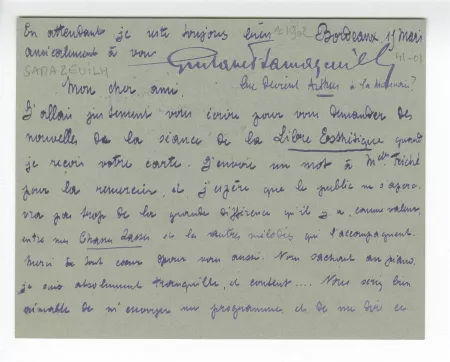 En attendant je reste toujours bien 1902 Bordeaux 17 Mars
amicalement à vous Gustave Samazeuilh 41-03
SAMAZEUILH Que devient Arthus à la monnaie?
Mon cher ami.
J'allais justement vous écrire pour vous demander des
nouvelles de la séance de la Libre Esthétique quand
je reçois votre carte. J'envoie un mot à Melle
pour la remercier, et j'espère que le public ne s'aperce-
vra pas trop de la grande différence qu'il y a, comme valeur
entre ma Chanson et les autres mélodies qui l'accompagnent.
Merci de tout coeur pour vous aussi. Vous sachant au piano
je suis absolument tranquille, et content .... Vous seriez bien
aimable de m'envoyer un programme, et de me dire ce